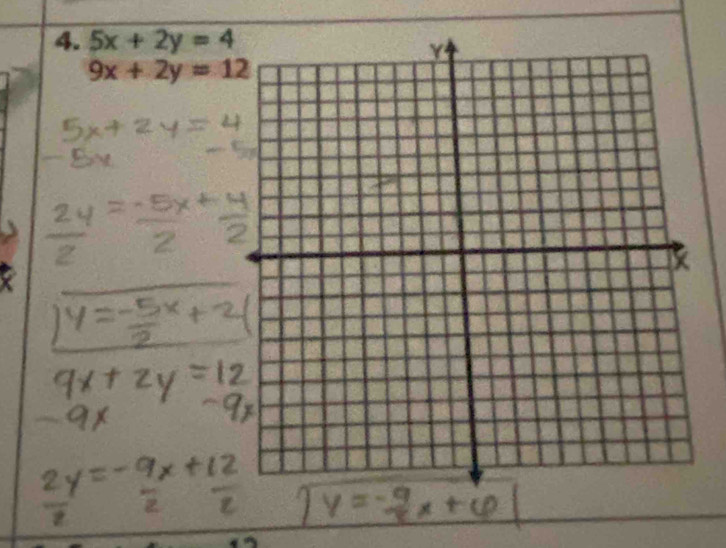 4. 5x + 2y = 4
9x + 2y = 12
Y
5x + 2y = 4
-5x -5x
2y/2 = -5x/2 + 4/2
X
y = -5/2 x + 2
9x + 2y = 12
-9x -9x
2y/2 = -9x/2 + 12/2
y = -9/2 x + 6